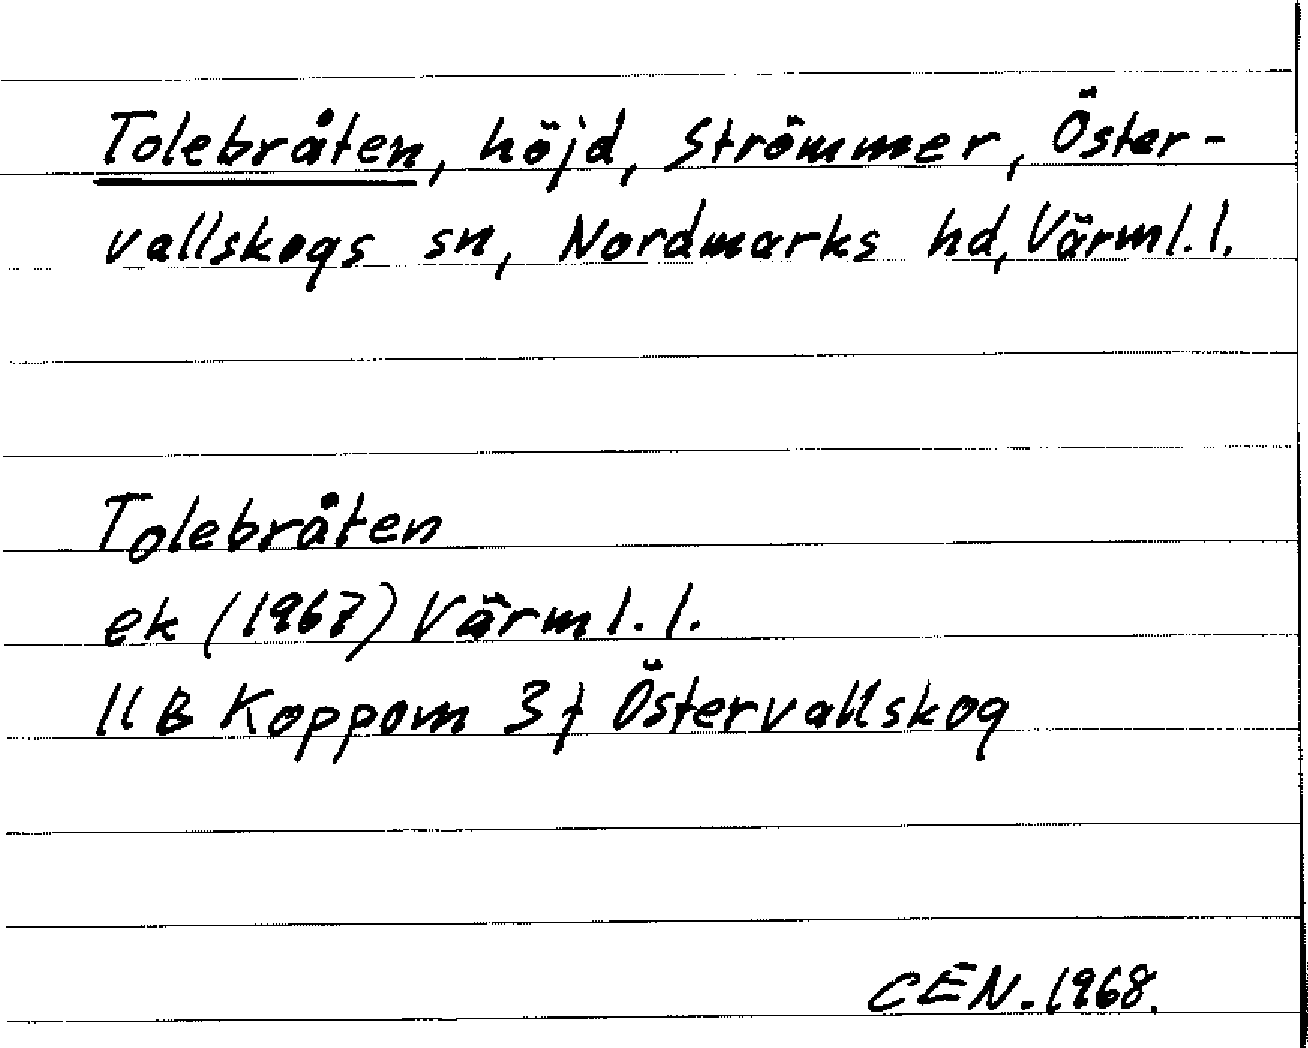 Tolebråten, höjd, Strömmer, Öster-
vallskogs sn, Nordmarks hd, Värml. l.
Tolebråten
ek (1967) Värml. l.
11B Koppom 3f Östervallskog
CEN. 1968.